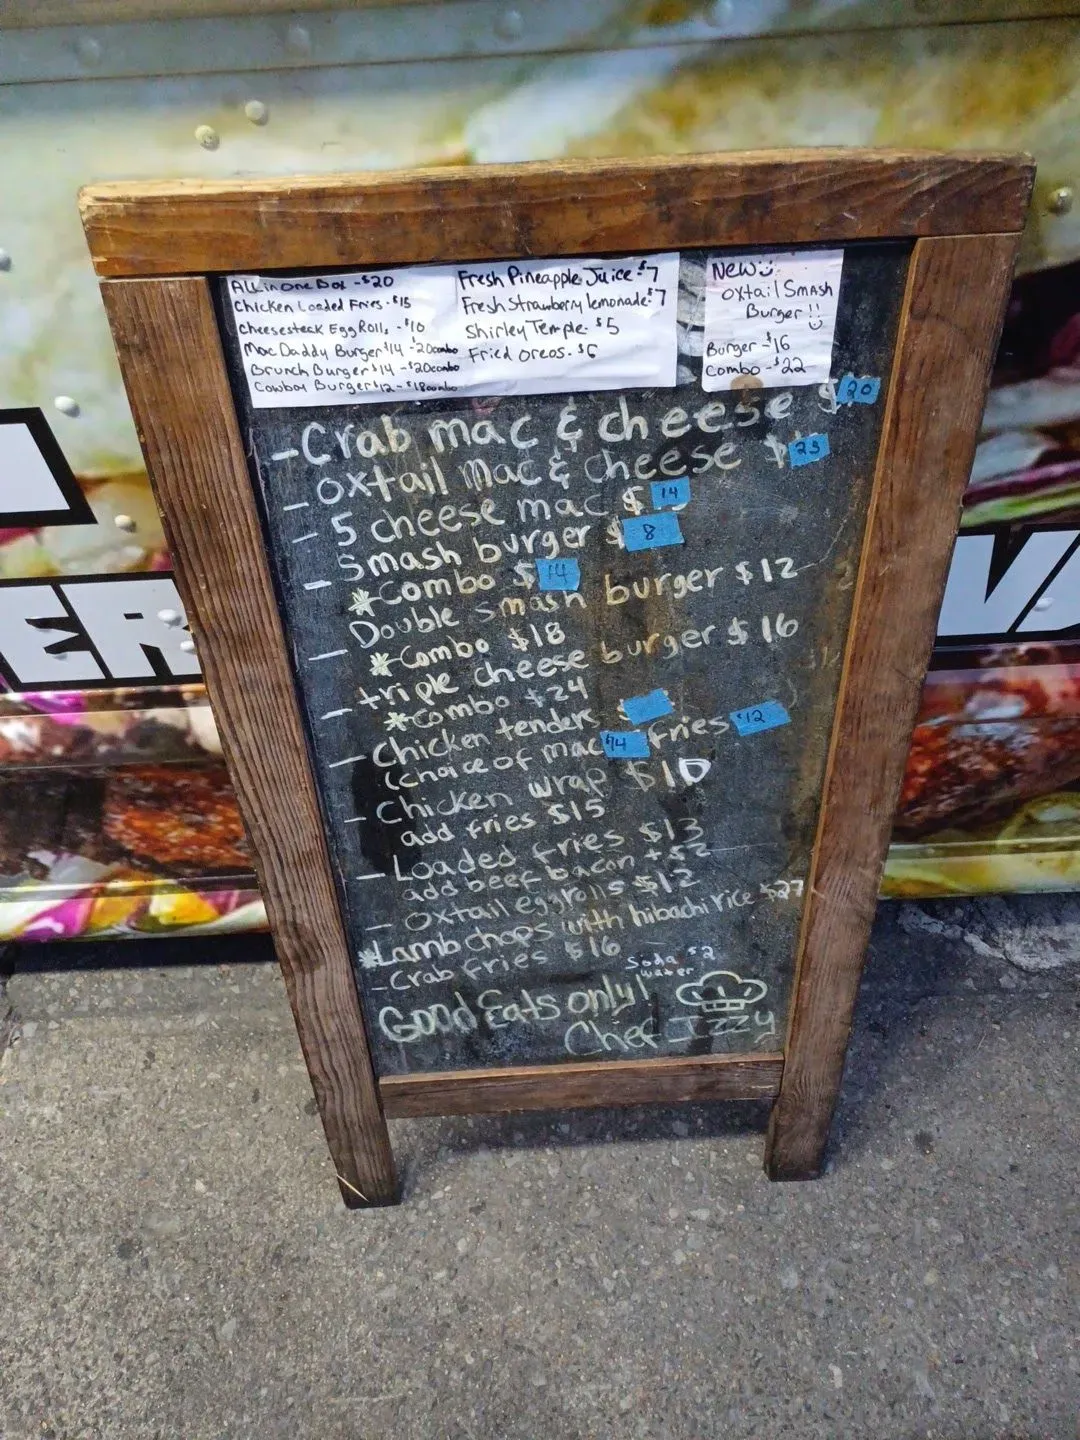 All in One Box - $20
Chicken Loaded Fries - $15
Cheesesteak Egg Roll - $10
Mac Daddy Burger $14 - $20 combo
Brunch Burger $14 - $20 combo
Cowboy Burger $12 - $18 combo
Fresh Pineapple Juice $7
Fresh Strawberry lemonade - $7
Shirley Temple - $5
Fried Oreos - $6
New
Oxtail Smash
Burger!!
Burger - $16
Combo - $22
- Crab mac & cheese $20
- Oxtail Mac & cheese $ 25
- 5 cheese mac $ 14
- Smash burger $ 8
*Combo $ 14
- Double smash burger $12
*Combo $18
- triple cheese burger $16
*combo +24
- Chicken tenders $
(choice of mac $14 fries $12
- Chicken wrap $10
add fries $15
- Loaded fries $13
add beef bacon + $2
- Oxtail eggrolls $12
*Lamb chops with hibachi rice $27
- Crab fries $16
Soda $2
water
Good Eats only!
Chef Izzy
ER